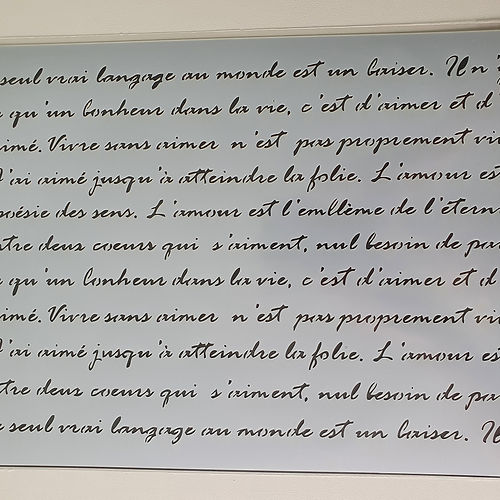 seul vrai langage au monde est un baiser. Il n'
qu'un bonheur dans la vie, c'est d'aimer et d'
aimé. Vivre sans aimer n'est pas proprement vi
J'ai aimé jusqu'à atteindre la folie. L'amour es
poésie des sens. L'amour est l'emblème de l'étern
tre deux coeurs qui s'aiment, nul besoin de pa
qu'un bonheur dans la vie, c'est d'aimer et d
imé. Vivre sans aimer n'est pas proprement vi
J'ai aimé jusqu'à atteindre la folie. L'amour es
tre deux coeurs qui s'aiment, nul besoin de pa
seul vrai langage au monde est un baiser. Il